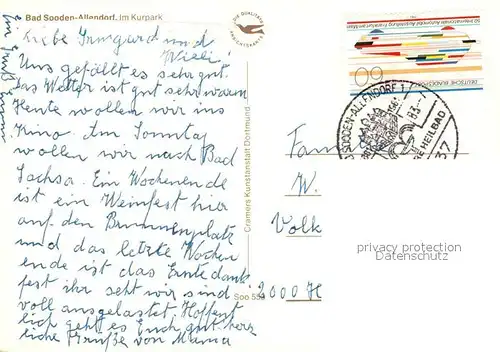 Bad Sooden-Allendorf. Im Kurpark
DIE QUALITÄTS
ANSICHTSKARTE
Liebe Irmgard und
Willi!
Uns gefällt es sehr gut.
Das Wetter ist gut sehr warm
Heute wollen wir ins
Kino. Am Sonntag
wollen wir nach Bad
Sachsa. Ein Wochenende
ist ein Weinfest hier
auf den Brunnenplatz
und das letzte Wochen
ende ist das Erntedank
fest ihr seht wir sind
voll ausgelastet Hoffent
lich geht es Euch gut. herz
liche Grüße von Mama
Cramers Kunstanstalt Dortmund
Soo 559
DEUTSCHE BUNDESPOST
60
50. Internationale Automobil-Ausstellung Frankfurt am Main
SOODEN-ALLENDORF 1
83-7
HEILBAD
37
Fam
W.
Volk
2000 H
privacy protection
Datenschutz